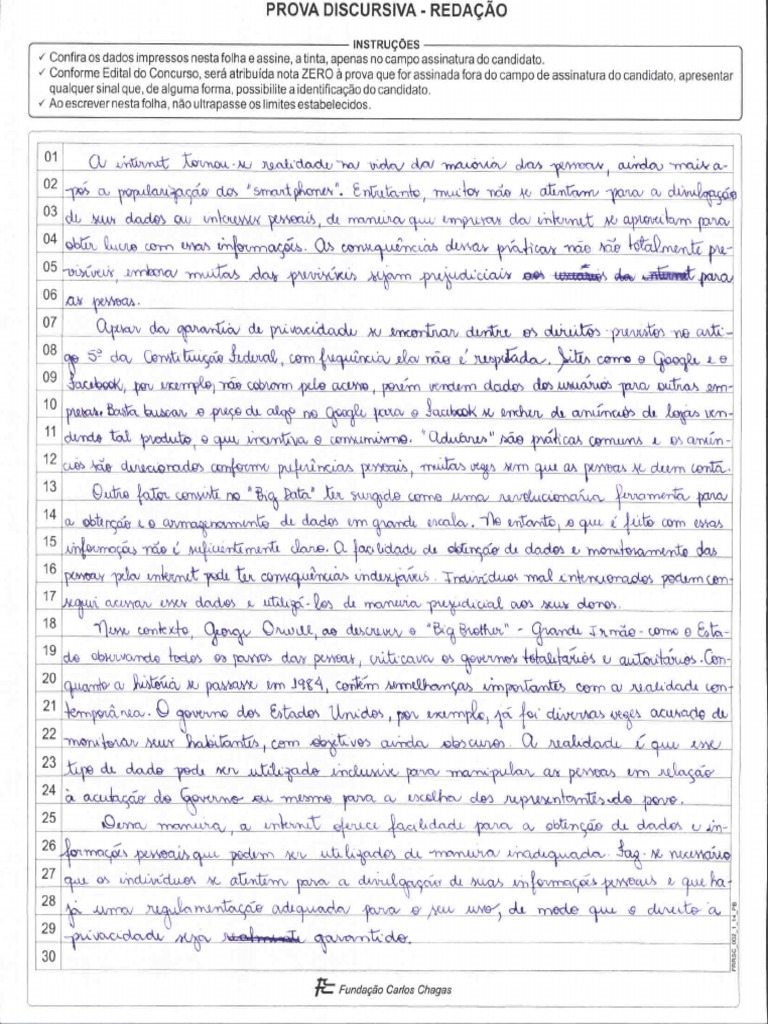 PROVA DISCURSIVA - REDAÇÃO
INSTRUÇÕES
✓ Confira os dados impressos nesta folha e assine, a tinta, apenas no campo assinatura do candidato.
✓ Conforme Edital do Concurso, será atribuída nota ZERO à prova que for assinada fora do campo de assinatura do candidato, apresentar
qualquer sinal que, de alguma forma, possibilite a identificação do candidato.
✓ Ao escrever nesta folha, não ultrapasse os limites estabelecidos.
01 A internet tornou-se realidade na vida da maioria das pessoas, ainda mais a-
02 pós a popularização dos "smartphones". Entretanto, muitos não se atentam para a divulgação
03 de seus dados ou interesses pessoais, de maneira que empresas da internet se aproveitam para
04 obter lucro com essas informações. As consequências dessas práticas não são totalmente pre-
05 visíveis, embora muitas das previsíveis sejam prejudiciais aos usuários da internet para
06 as pessoas.
07 Apesar da garantia de privacidade se encontrar dentre os direitos previstos no arti-
08 go 5º da Constituição Federal, com frequência ela não é respeitada. Sites como o Google e o
09 Facebook, por exemplo, não cobram pelo acesso, porém vendem dados dos usuários para outras em-
10 presas. Basta buscar o preço de algo no Google para o Facebook se encher de anúncios de lojas ven-
11 dendo tal produto, o que incentiva o consumismo. "Adwares" são práticas comuns e os anún-
12 cios são direcionados conforme preferências pessoais, muitas vezes sem que as pessoas se deem conta.
13 Outro fator consiste no "Big Data" ter surgido como uma revolucionária ferramenta para
14 a obtenção e o armazenamento de dados em grande escala. No entanto, o que é feito com essas
15 informações não é suficientemente claro. A facilidade de obtenção de dados e monitoramento das
16 pessoas pela internet pode ter consequências indesejáveis. Indivíduos mal intencionados podem con-
17 segui acessar esses dados e utilizá-los de maneira prejudicial aos seus donos.
18 Nesse contexto, George Orwell, ao descrever o "Big Brother" - Grande Irmão - como o Esta-
19 do observando todos os passos das pessoas, criticava os governos totalitários e autoritários. Con-
20 quanto a história se passasse em 1984, contém semelhanças importantes com a realidade con-
21 temporânea. O governo dos Estados Unidos, por exemplo, já foi diversas vezes acusado de
22 monitorar seus habitantes, com objetivos ainda obscuros. A realidade é que esse
23 tipo de dado pode ser utilizado inclusive para manipular as pessoas em relação
24 à acutação do Governo ou mesmo para a escolha dos representantes do povo.
25 Dessa maneira, a internet oferece facilidade para a obtenção de dados e in-
26 formações pessoais que podem ser utilizados de maneira inadequada. Faz-se necessário
27 que os indivíduos se atentem para a divulgação de suas informações pessoais e que ha-
28 já uma regulamentação adequada para o seu uso, de modo que o direito à
29 privacidade seja realmente garantido.
30
FRRSC_002_1_14_PB
Fundação Carlos Chagas